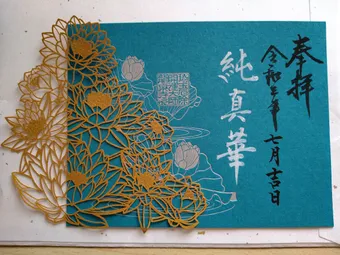 奉拝
令和三年
七月吉日
純真華